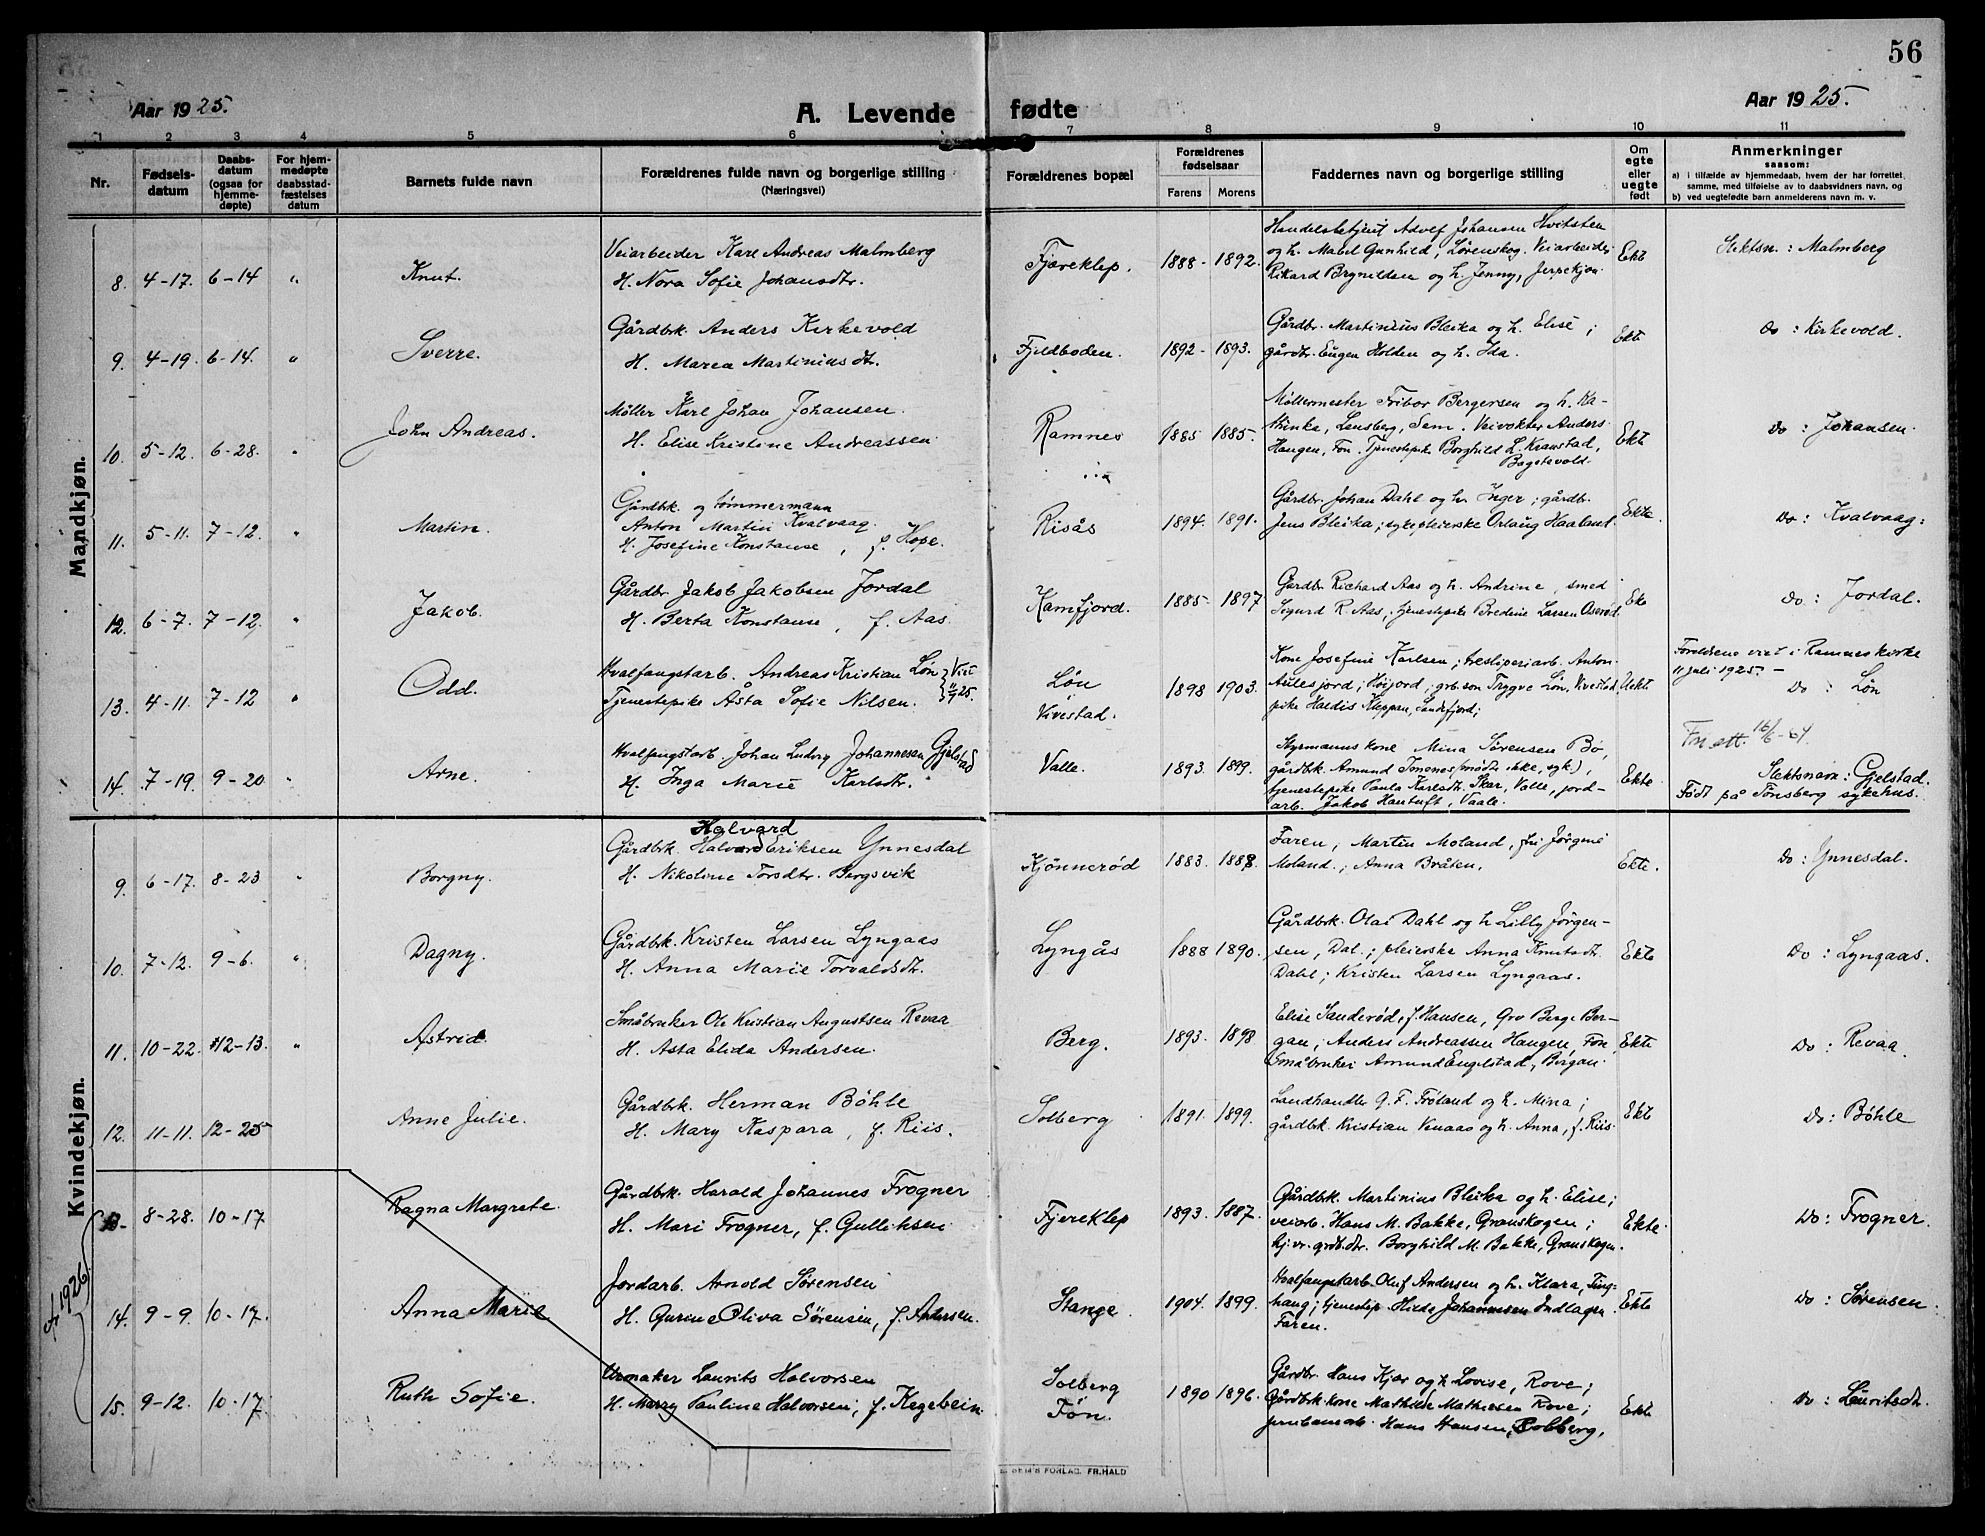 56
Aar 1925.
A. Levende fødte
Aar 1925.
1 2 3 4 5 6 7 8 9 10 11
Nr.
Fødsels-
datum
Daabs-
datum
(ogsaa for
hjemme-
døpte)
For hjem-
medøpte
daabsstad-
fæstelses
datum
Barnets fulde navn
Forældrenes fulde navn og borgerlige stilling
(Næringsvei)
Forældrenes bopæl
Forældrenes
fødselsaar
Farens Morens
Faddernes navn og borgerlige stilling
Om
egte
eller
uegte
født
Anmerkninger
saasom:
a) i tilfælde av hjemmedaab, hvem der har forrettet
samme, med tilføielse av to daabsvidners navn, og
b) ved uegtefødte barn anmelderens navn m. v.
Mandkjøn.
8. 4-17. 6-14 " Knut.
Veiarbeider Karl Andreas Malmberg
H. Nora Sofie Johansdtr.
Fjæreklep. 1888- 1892.
Handelsbetjent Adolf Johansen Hvitsten
og h. Mabel Gunhild, Lørenskog. Veiarbeider
Rikard Brynildsen og h. Jenny, Jerpekjøn.
Ekte
Slektsn.: Malmberg
9. 4-19. 6-14. " Sverre.
Gårdbrk. Anders Kirkevold
H. Maren Martiniusdtr.
Fjeldboden. 1892- 1893.
Gårdbr. Martinius Bleika og h. Elise;
gårdbr. Eugen Holden og h. Ida.
Ekte
Do: Kirkevold.
10. 5-12. 6-28. " John Andreas.
Møller Karl Johan Johansen.
H. Elise Kristine Andreassen
Ramnes 1885 1885.
Møllermester Fribor Bergersen og h. Ka-
thinka, Lensberg, Sem. Veivokter Anders
Haugen, Fon. Tjenestepike Borghild L. Kranstad,
Bagstevold.
Ekte
Do: Johansen.
11. 5-11. 7-12. " Martin.
Gårdbrk. og tømmermann
Anton Martin Kvalvaag.
H. Josefine Konstanse, f. Hope.
Risås 1894. 1891.
Gårdbr. Johan Dahl og h. Inger; gårdbr.
Jens Bleika; sykepleierske Orlaug Haaland.
Ekte.
Do: Kvalvaag.
12. 6-7. 7-12. " Jakob.
Gårdbr. Jakob Jakobsen Jordal
H. Berta Konstanse, f. Aas.
Kamfjord. 1885- 1897
Gårdbr. Richard Aas og h. Andrine, smed
Sigurd R. Aas, tjenestepike Bredine Larsen Oserød.
Ekte
Do: Jordal.
13. 4-11. 7-12 " Odd.
Hvalfangstarb. Andreas Kristian Løn
Tjenestepike Åsta Sofie Nilsen.
Viet 11/7 25.
Løn
Vivestad.
1898 1903.
Kone Josefine Karlsen; tresliperiarb. Anton
Aulesjord, Høijord; grb.søn Trygve Løn, Vivestad
pike Haldis Kleppan, Sandefjord;
Uekte
Foreldrene viet i Ramnes kirke
11 juli 1925. -
Do: Løn
Fri att. 16/6-64.
14. 7-19. 9-20 " Arne.
Hvalfangstarb. Johan Ludvig Johannesen Gjelstad
H. Inga Marie Karlsdtr.
Valle. 1893. 1899.
Styrmannskone Mina Sørensen Bø,
gårdbk. Amund Imenes (møtt ikke, syk.),
tjenestepike Paula Karlsdtr. Skar, Valle, jord-
arb. Jakob Hantuft, Vaale.
Ekte
Slektsnavn: Gjelstad.
Født på Tønsberg sykehus.
Kvindekjøn.
9. 6-17. 8-23 " Borgny.
Halvard
Gårdbrk. Halvard Eriksen Ynnesdal
H. Nikoline Torsdtr. Bergsvik
Kjønnerød 1883. 1888.
Faren, Martin Moland, fru Jørgine
Moland.; Anna Bråten.
Ekte.
Do: Ynnesdal.
10. 7-12. 9-6. " Dagny.
Gårdbrk. Kristen Larsen Lyngaas
H. Anna Marie Torvaldsdtr.
Lyngås 1888 1890.
Gårdbrk. Olai Dahl og h Lilly Jørgen-
sen, Dal.; pleierske Anna Knutsdtr.
Dahl; Kristen Larsen Lyngaas.
Ekte
Do: Lyngaas.
11. 10-22. 12-13. " Astrid.
Småbruker Ole Kristian Augustsen Revaa
H. Asta Elida Andersen.
Berg. 1893. 1898
Elise Sanderød, f. Hansen, Gro Berge Bor-
gan; Anders Andreassen Haugen, Fon,
Småbruker Amund Engelstad, Borgan.
Ekte
Do: Revaa.
12. 11-11. 12-25 Anne Julie.
Gårdbrk. Herman Böhle
H. Mary Kaspara, f. Riis.
Solberg 1891. 1899.
Landhandler G. F. Frøland og h. Mina;
gårdbrk. Kristian Venaas og h. Anna, f. Riis.
Ekte
Do: Böhle
F. 1926.
13. 8-28. 10-17. Ragna Margrete.
Gårdbrk. Harald Johannes Frogner
H. Mari Frogner, f. Gulliksen
Fjæreklep 1893. 1887.
Gårdbrk. Martinius Bleika og h. Elise;
veiarb. Hans M. Bakke, Granskogen;
hj.vr. grdb.dtr. Borghild M. Bakke, Granskogen.
Ekte
Do: Frogner.
14. 9-9. 10-17. Anna Marie
Jordarb. Arnold Sørensen
H. Gurine Oliva Sørensen, f. Andersen.
Stange. 1904. 1899.
Hvalfangstarb. Oluf Andersen og h. Klara, Ting-
haug; tjenestep. Hilda Johannesen Indlagen.
Faren.
Ekte
Do: Sørensen.
15. 9-12. 10-17. Ruth Sofie.
Urmaker Laurits Halvorsen
H. Marry Pauline Halvorsen, f. Kegebein
Solberg
Føn.
1890 1896.
Gårdbr. Hans Kjær og h. Lovise, Rove;
Gårdbrk. kone Mathilde Mathiesen Rove;
jernbanearb. Hans Hansen, Solberg,
Ekte
Do: Lauritsdt.
SEM'S FORLAG. FR.HALD